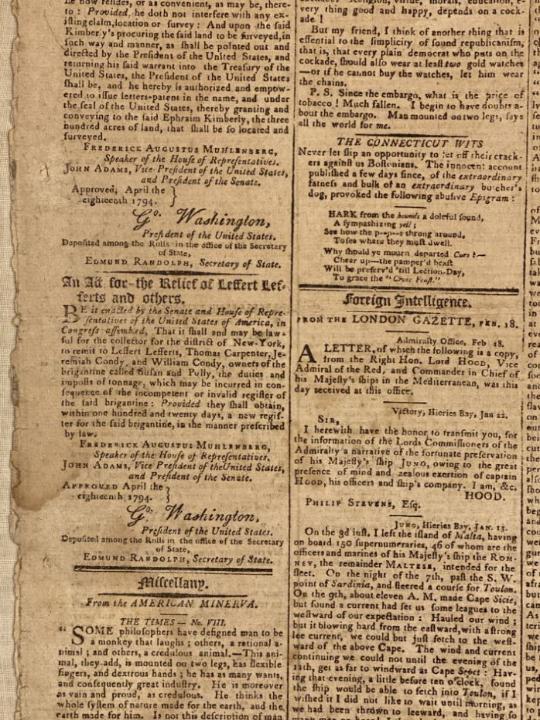 how resides, or as convenient, as may be, there-
to: Provided, he doth not interfere with any ex-
isting claim, location or survey: And upon the said
Kimberly's procuring the said land to be surveyed, in
such way and manner, as shall be pointed out and
directed by the President of the United States, and
returning his said warrant into the Treasury of the
United States, the President of the United States
shall be, and he hereby is authorized and empow-
ered to issue letters-patent in the name, and under
the seal of the United States, thereby granting and
conveying to the said Ephraim Kimberly, the three
hundred acres of land, that shall be so located and
surveyed.
FREDERICK AUGUSTUS MUHLENBERG,
Speaker of the House of Representatives.
JOHN ADAMS, Vice-President of the United States,
and President of the Senate.
Approved, April the
eighteenth 1794.
Go. Washington,
President of the United States.
Deposited among the Rolls in the office of the Secretary
of State,
EDMUND RANDOLPH, Secretary of State.
An Act for the Relief of Leffert Lef-
ferts and others.
BE it enacted by the Senate and House of Repre-
sentatives of the United States of America, in
Congress assembled, That it shall and may be law-
ful for the collector for the district of New-York,
to remit to Leffert Lefferts, Thomas Carpenter, Je-
remiah Condy, and William Condy, owners of the
brigantine called Susan and Polly, the duties and
imposts of tonnage, which may be incurred in con-
sequence of the incompetent or invalid register of
the said brigantine: Provided they shall obtain,
within one hundred and twenty days, a new regis-
ter for the said brigantine, in the manner prescribed
by law.
FREDERICK AUGUSTUS MUHLENBERG,
Speaker of the House of Representatives.
JOHN ADAMS, Vice President of the United States,
and President of the Senate.
APPROVED April the
eighteenth, 1794.
Go. Washington,
President of the United States.
Deposited among the Rolls in the office of the Secretary
of State,
EDMUND RANDOLPH, Secretary of State.
Miscellany.
From the AMERICAN MINERVA.
THE TIMES — No. VIII.
"SOME philosophers have designed man to be
a monkey that laughs; others, a rational a-
nimal; and others, a credulous animal.—This ani-
mal, they add, is mounted on two legs, has flexible
fingers, and dextrous hands; he has as many wants,
and consequently great industry. He is moreover
as vain and proud, as credulous. He thinks the
whole system of nature made for the earth, and the
earth made for him. Is not this description of man
very thing good and happy, depends on a cock-
ade!
But my friend, I think of another thing that is
essential to the simplicity of sound republicanism,
that is, that every plain democrat who puts on the
cockade, should also wear at least two gold watches
—or if he cannot buy the watches, let him wear
the chains.
P. S. Since the embargo, what is the price of
tobacco! Much fallen. I begin to have doubts a-
bout the embargo. Man mounted on two legs, says
all the world for me.
THE CONNECTICUT WITS
Never let slip an opportunity to let off their crack-
ers against us Bostonians. The innocent account
published a few days since, of the extraordinary
fatness and bulk of an extraordinary butcher's
dog, provoked the following abusive Epigram:
HARK from the hounds a doleful sound,
A sympathizing yell;
See how the p—p—s throng around,
To see where they must dwell.
Why should ye mourn departed Curs?—
Cheer up—the pamper'd beast
Will be preserv'd 'till Lection-Day,
To grace the "Civic Feast."
Foreign Intelligence.
FROM THE LONDON GAZETTE, FEB. 18.
Admiralty Office, Feb 18.
A LETTER, of which the following is a copy,
from the Right Hon. Lord HOOD, Vice
Admiral of the Red, and Commander in Chief of
his Majesty's ships in the Mediterranean, was this
day received at this office.
Victory, Hieries Bay, Jan 22.
SIR,
I herewith have the honor to transmit you, for
the information of the Lords Commissioners of the
Admiralty a narrative of the fortunate preservation
of his Majesty's ship JUNO, owing to the great
presence of mind and zealous exertion of captain
HOOD, his officers and ship's company. I am, &c.
HOOD.
PHILIP STEVENS, Esq.
JUNO, Hieries Bay, JAN. 13.
On the 3d inst. I left the island of Malta, having
on board 150 supernumeraries, 46 of whom are the
officers and marines of his Majesty's ship the ROM-
NEY, the remainder MALTESE, intended for the
fleet. On the night of the 7th, past the S. W.
point of Sardinia, and steered a course for Toulon.
On the 9th, about eleven A. M. made Cape Sicie,
but found a current had set us some leagues to the
westward of our expectation: Hauled our wind;
but it blowing hard from the eastward, with a strong
lee current, we could but just fetch to the west-
ward of the above Cape. The wind and current
continuing we could not until the evening of the
11th, get as far to windward as Cape Sepet: Hav-
ing that evening, a little before ten o'clock, found
the ship would be able to fetch into Toulon, if I
wished it I did not like to wait until morning, as
we had been thrown to leeward, and having